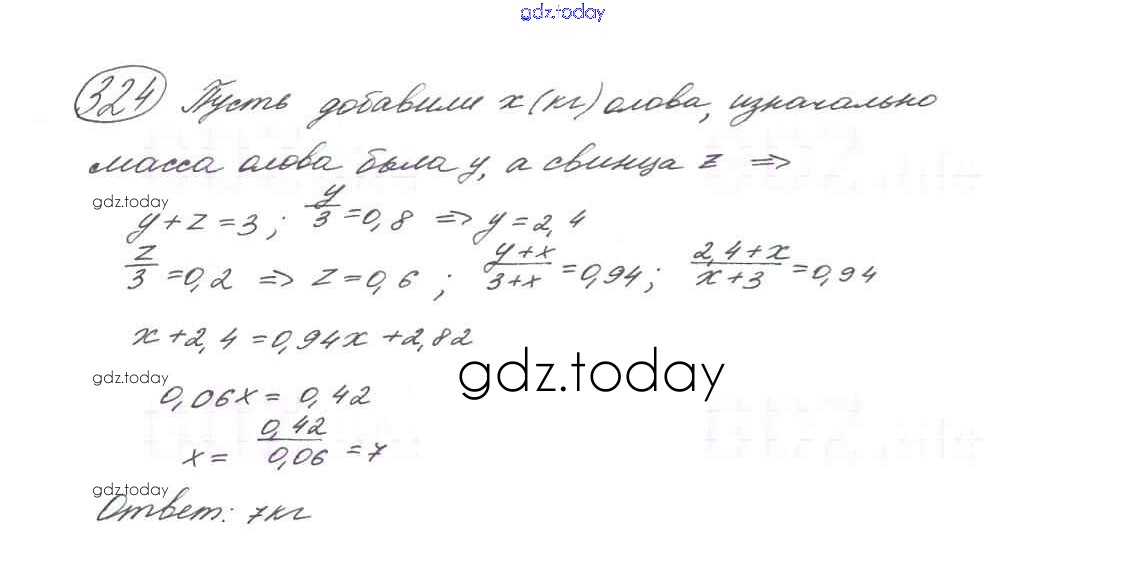 gdz.today
324 Пусть добавили x (кг) олова, изначально
масса олова была y, а свинца z ⇒
gdz.today
y + z = 3; y/3 = 0,8 ⇒ y = 2,4
z/3 = 0,2 ⇒ z = 0,6; (y+x)/(3+x) = 0,94; (2,4+x)/(x+3) = 0,94
x + 2,4 = 0,94x + 2,82
gdz.today
gdz.today
0,06x = 0,42
x = 0,42/0,06 = 7
gdz.today
Ответ: 7кг